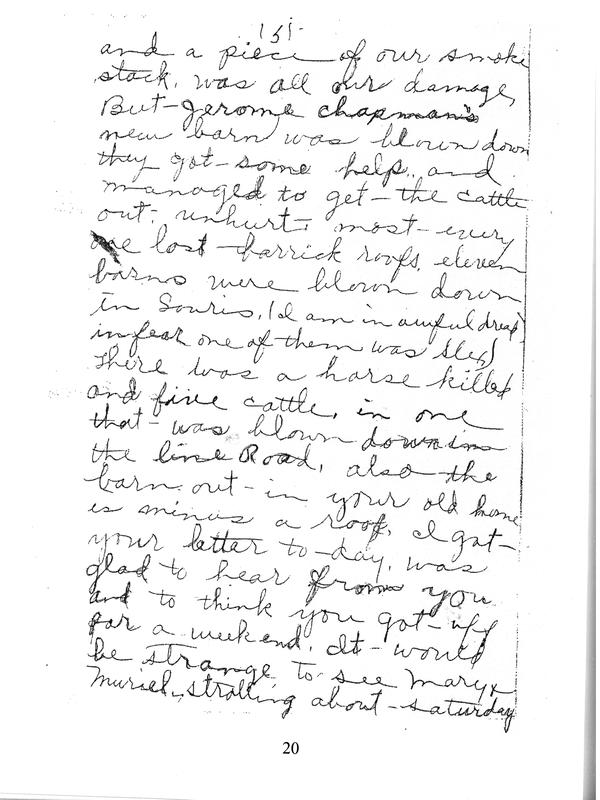 151
and a piece of our smoke
stack, was all our damage,
But Jerome Chapman's
new barn was blown down
they got some help, and
managed to get the cattle
out, unhurt, most every
one lost barrick roofs, eleven
barns were blown down
in Souris, (I am in awful dread
in fear one of them was Sled)
There was a horse killed
and five cattle, in one
that was blown down in
the line Road, also the
barn out in your old home
is minus a roof, I got
your letter to-day, was
glad to hear from you
and to think you got off
for a weekend, It would
be strange to see Mary &
Muriel, strolling about saturday
20